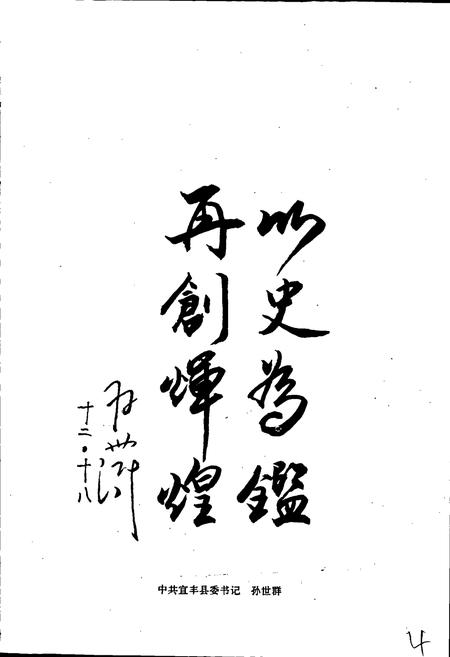 以史為鑑
再創輝煌
孙世群
十二·十八
中共宜丰县委书记 孙世群
4